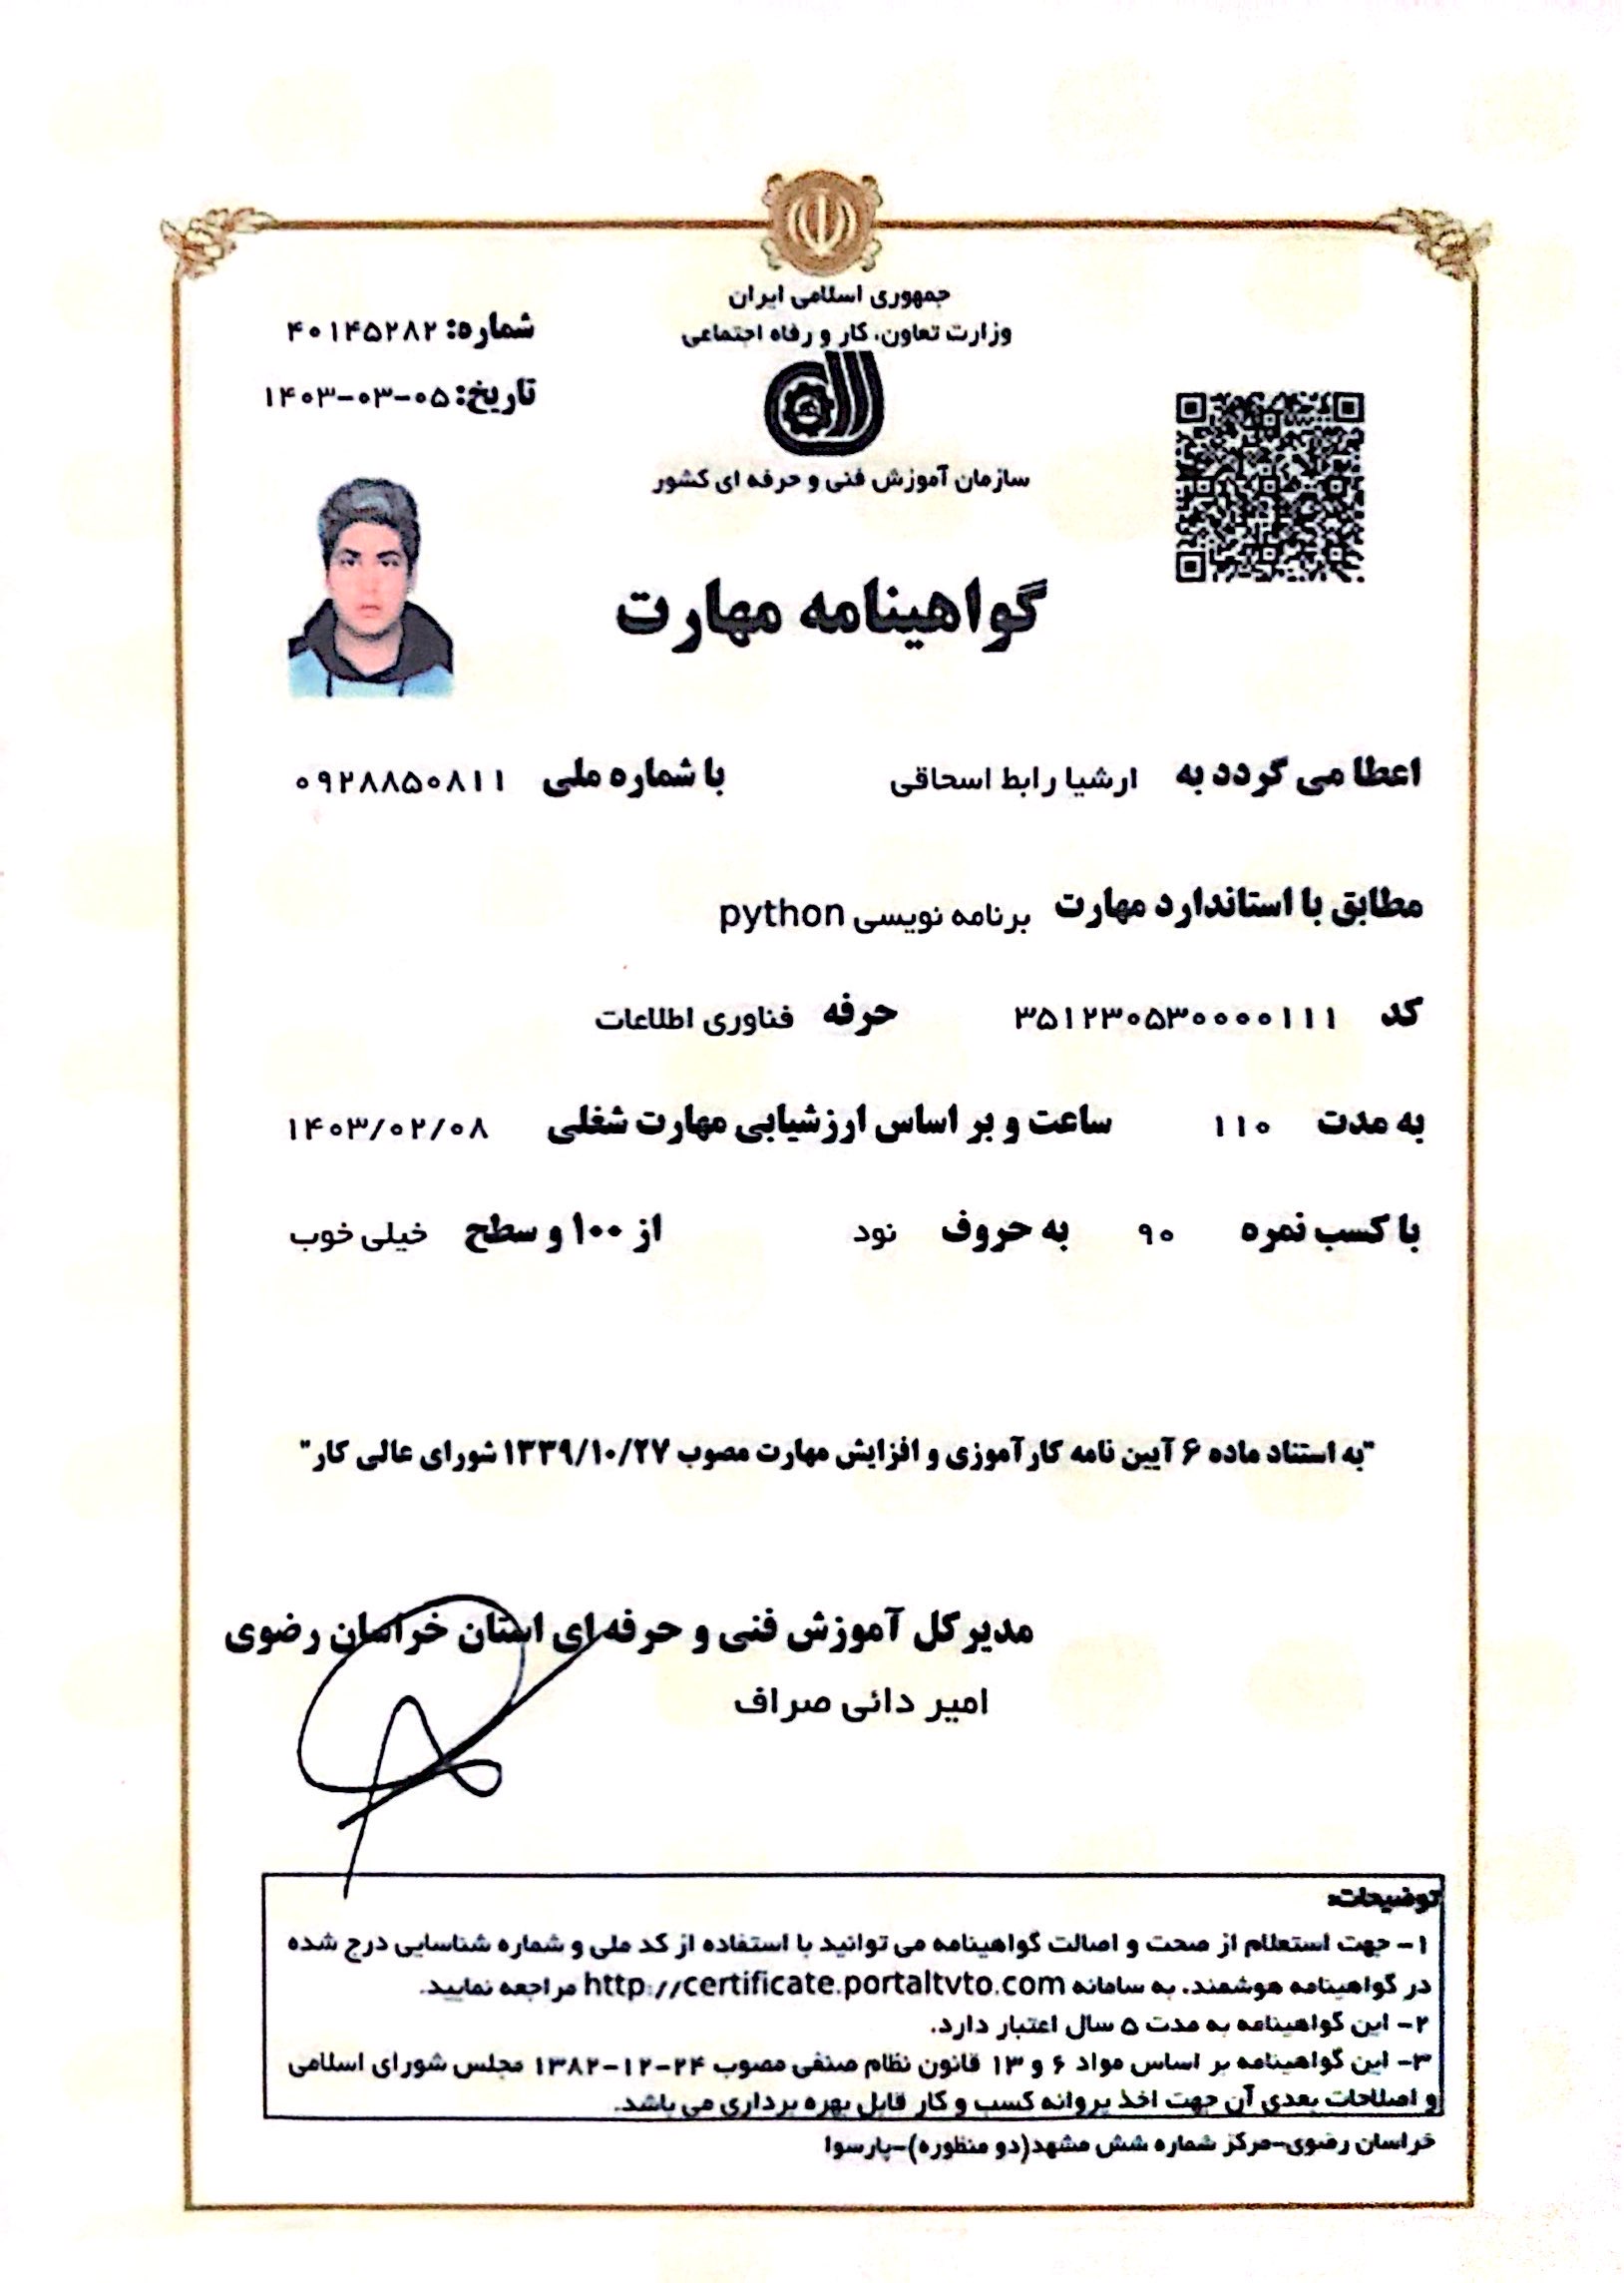 جمهوری اسلامی ایران
وزارت تعاون، کار و رفاه اجتماعی
شماره: ۴۰۱۴۵۲۸۲
تاریخ: ۱۴۰۳-۰۳-۰۵
سازمان آموزش فنی و حرفه ای کشور
گواهینامه مهارت
اعطا می گردد به ارشیا رابط اسحاقی با شماره ملی ۰۹۲۸۸۵۰۸۱۱
مطابق با استاندارد مهارت برنامه نویسی python
کد ۳۵۱۲۳۰۵۳۰۰۰۰۱۱۱ حرفه فناوری اطلاعات
به مدت ۱۱۰ ساعت و بر اساس ارزشیابی مهارت شغلی ۱۴۰۳/۰۲/۰۸
با کسب نمره ۹۰ به حروف نود از ۱۰۰ و سطح خیلی خوب
"به استناد ماده ۶ آیین نامه کارآموزی و افزایش مهارت مصوب ۱۳۳۹/۱۰/۲۷ شورای عالی کار"
مدیرکل آموزش فنی و حرفه ای استان خراسان رضوی
امیر دائی صراف
توضیحات:
۱- جهت استعلام از صحت و اصالت گواهینامه می توانید با استفاده از کد ملی و شماره شناسایی درج شده
در گواهینامه هوشمند، به سامانه http://certificate.portaltvto.com مراجعه نمایید.
۲- این گواهینامه به مدت ۵ سال اعتبار دارد.
۳- این گواهینامه بر اساس مواد ۶ و ۱۳ قانون نظام صنفی مصوب ۲۴-۱۲-۱۳۸۲ مجلس شورای اسلامی
و اصلاحات بعدی آن جهت اخذ پروانه کسب و کار قابل بهره برداری می باشد.
خراسان رضوی-مرکز شماره شش مشهد(دو منظوره)-پارسوا